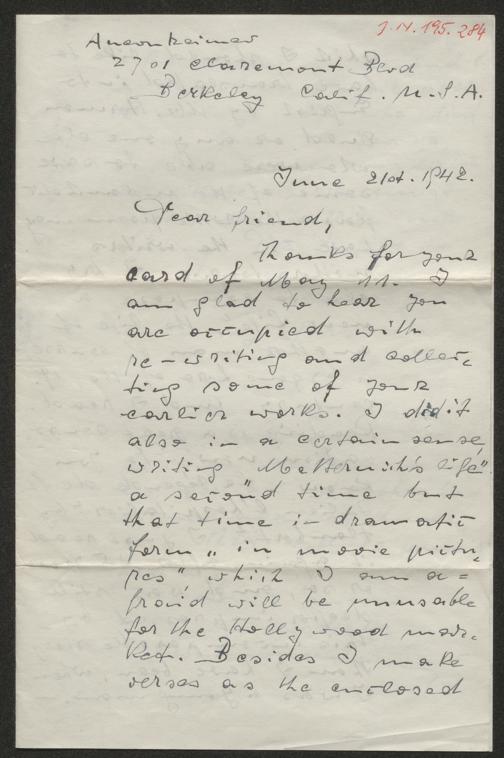 J.N. 195.284
Auernheimer
2701 Claremont Blvd
Berkeley Calif. U.S.A.
June 21st. 1942.
Dear friend,
Thanks for your
card of May 11. I
am glad to hear you
are occupied with
re-writing and collec-
ting some of your
earlier works. I did it
also in a certain sense,
writing Metternich's life"
a second time but
that time in dramatic
form „in movie pictu-
res", which I am a=
fraid will be unusable
for the Hollywood mar-
ket. Besides I make
verses as the enclosed